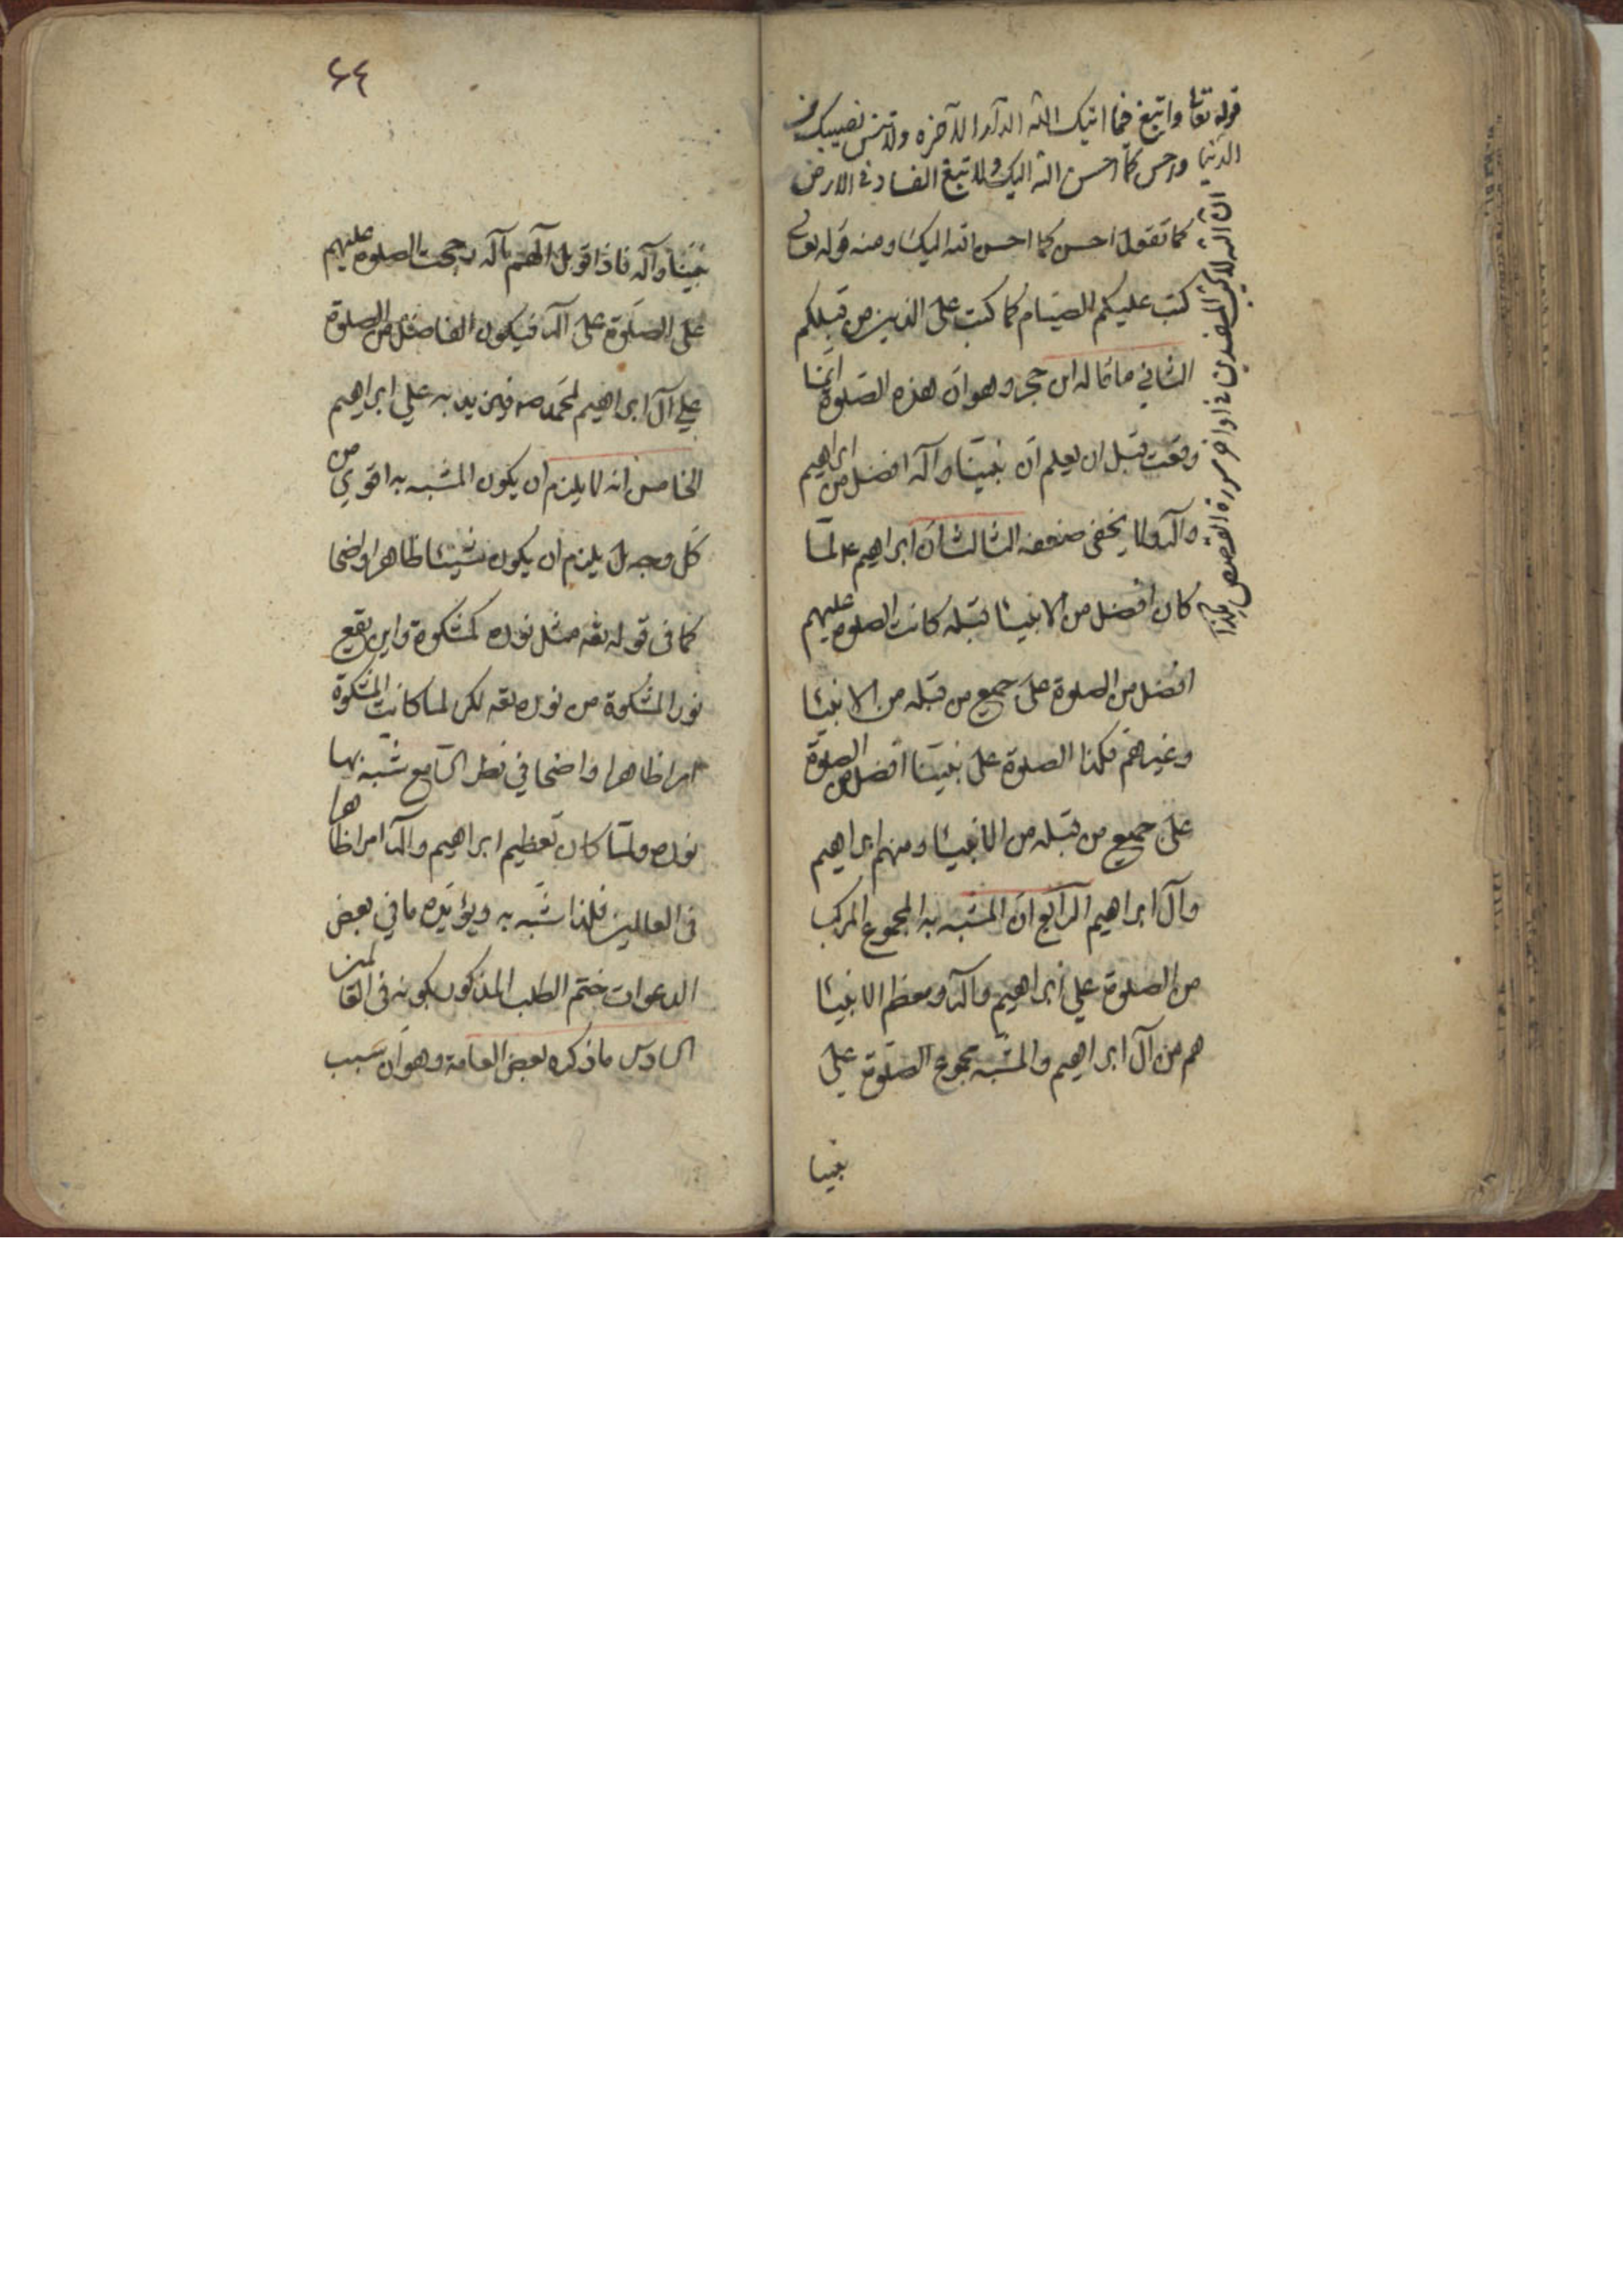 قوله تعا وابتغ فيما اتيك الله الدار الآخرة ولا تنس نصيبك من
الدنيا واحسن كما احسن الله اليك ولا تبغ الفساد في الارض
ان الله لا يحب المفسدين في اواخر سورة القصص هكذا
كما تقول احسن كما احسن الله اليك ومنه قوله تعالى
كتب عليكم الصيام كما كتب على الذين من قبلكم
الثاني ما قاله ابن حجر وهو ان هذه الصلوة انما
وقعت قبل ان يعلم ان نبينا وآله افضل من ابراهيم
وآله ولا يخفى ضعفه الثالث ان ابراهيم ع لما
كان افضل من الانبيا قبله كانت الصلوة عليهم
افضل من الصلوة على جميع من قبله من الانبيا
وغيرهم فكذا الصلوة على نبينا افضل من الصلوة
على جميع من قبله من الانبيا ومنهم ابراهيم
وآل ابراهيم الرابع ان المشبه به المجموع المركب
من الصلوة علي ابراهيم وآله ومعظم الانبيا
هم من آل ابراهيم والمشبه مجموع الصلوة علي
نبينا
٦٤
نبينا وآله فاذا قوبل الهم بآله رجحت الصلوة عليهم
على الصلوة على آله فيكون الفاضل من الصلوة
علي آل ابراهيم لمحمد ص فيزيد به علي ابراهيم
الخامس انه لا يلزم ان يكون المشبه به اقوي من
كل وجه بل يلزم ان يكون شيئا ظاهرا واضحا
كما في قوله تعه مثل نوره كمشكوة واين يقع
نور المشكوة من نوره تعه لكن لما كانت المشكوة
امرا ظاهرا واضحا في نظر السامع شبه بها
نوره ولما كان تعظيم ابراهيم وآله امرا ظاهرا
في العالمين فلذا شبه به ويؤيده ما في بعض
الدعوات ختم الطلب المذكور بكونه في العالمين
السادس ما ذكره بعض العامة وهو ان سبب